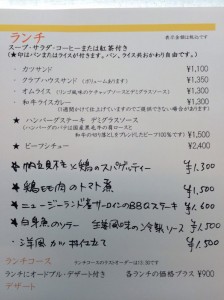 ランチ
表示金額は税込です
スープ・サラダ・コーヒーまたは紅茶付き
(★印はパンまたはライスが付きます。パン、ライス共おかわり自由です。)
・ カツサンド ¥1,100
・ クラブハウスサンド (ボリュームあります) ¥1,350
・ オムライス (リンゴ風味のケチャップソースとデミグラスソース) ¥1,300
・ 和牛ライスカレー ¥1,300
(1週間かけて仕上げていますのでご提供できない場合があります)
★ ハンバーグステーキ デミグラスソース
(ハンバーグのパテは国産黒毛牛の肩ロースと
和牛の切り落としをブレンドした牛肉100%です) ¥1,500
★ ビーフシチュー ¥2,400
★ 帆立貝柱と鶏のスパゲッティー ¥1,300
★ 鶏もも肉のトマト煮 ¥1,500
★ ニュージーランド産サーロインのBBQステーキ ¥1,600
★ 白身魚のソテー 生姜風味の冷製ソース ¥1,500
・ 洋風カツ丼仕立て ¥1,500
ランチコース ランチコースのラストオーダーは13:30です
ランチにオードブル・デザート付き 各ランチの価格プラス ¥900
デザート